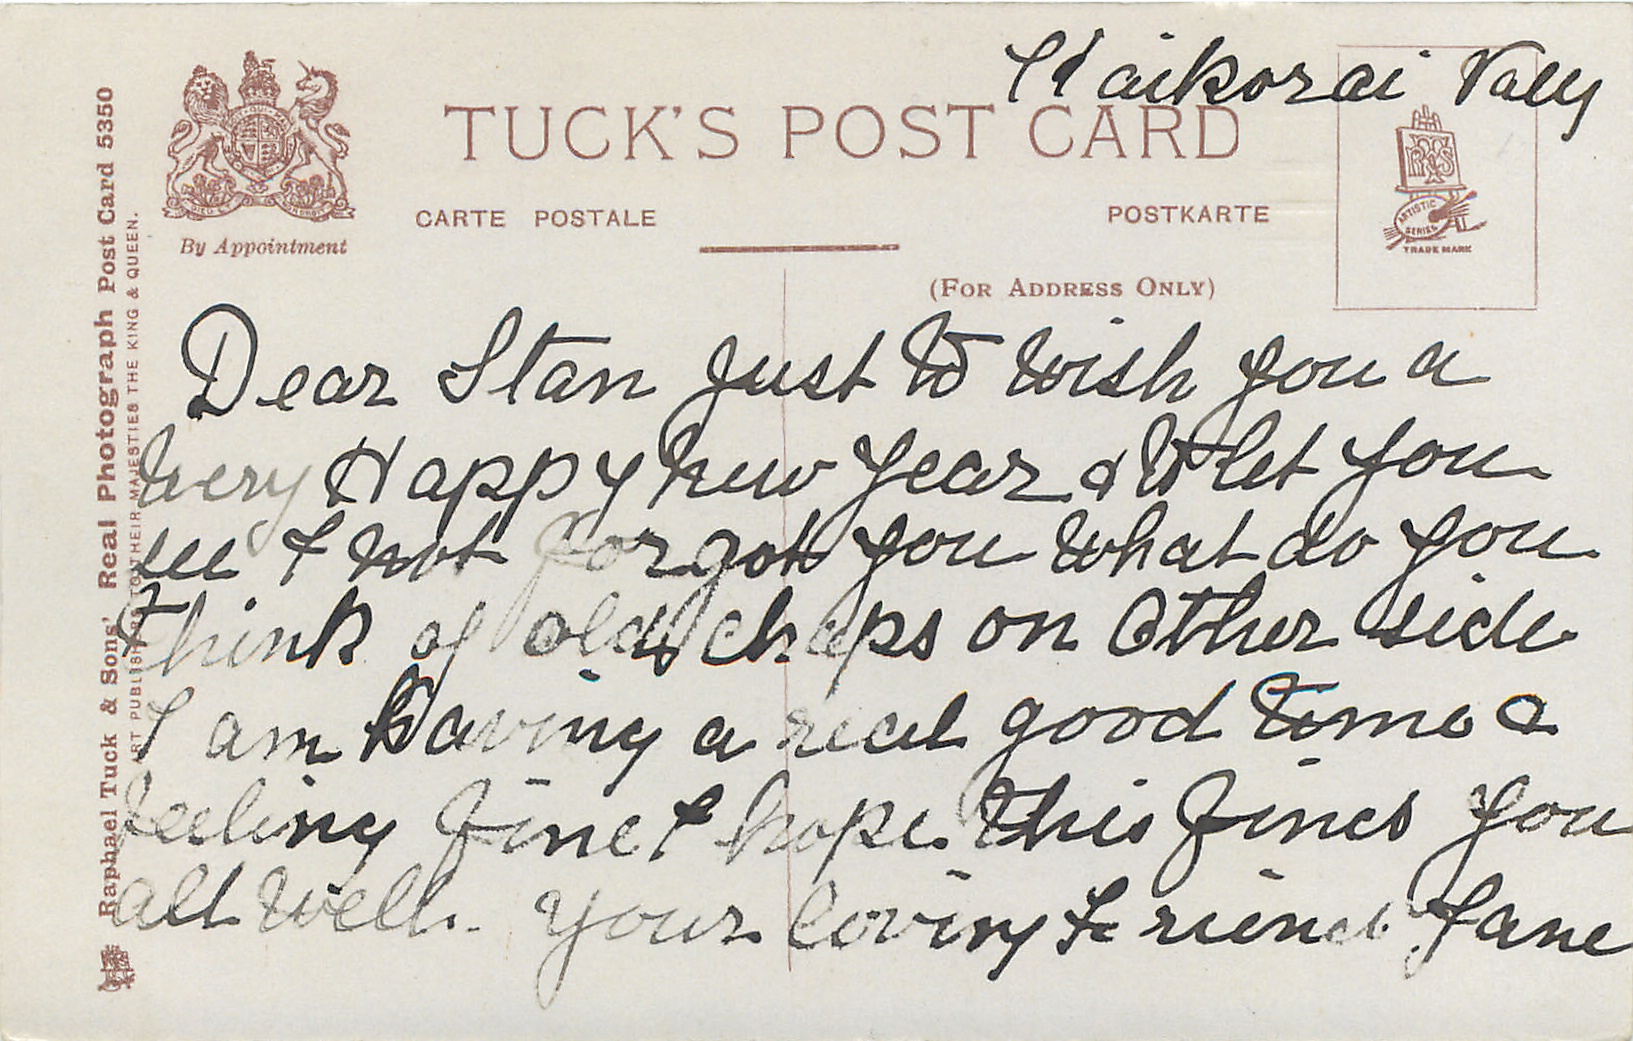 Kaikorai Vally
TUCK'S POST CARD
CARTE POSTALE
POSTKARTE
By Appointment
(FOR ADDRESS ONLY)
ARTISTIC SERIES
TRADE MARK
Raphael Tuck & Sons' Real Photograph Post Card 5350
ART PUBLISHERS TO THEIR MAJESTIES THE KING & QUEEN.
Dear Stan just to wish you a
very Happy new year & to let you
see I not forgot you what do you
think of old chaps on Other side
I am having a real good time &
feeling fine I hope this fines you
all well. your loving Friend Jane